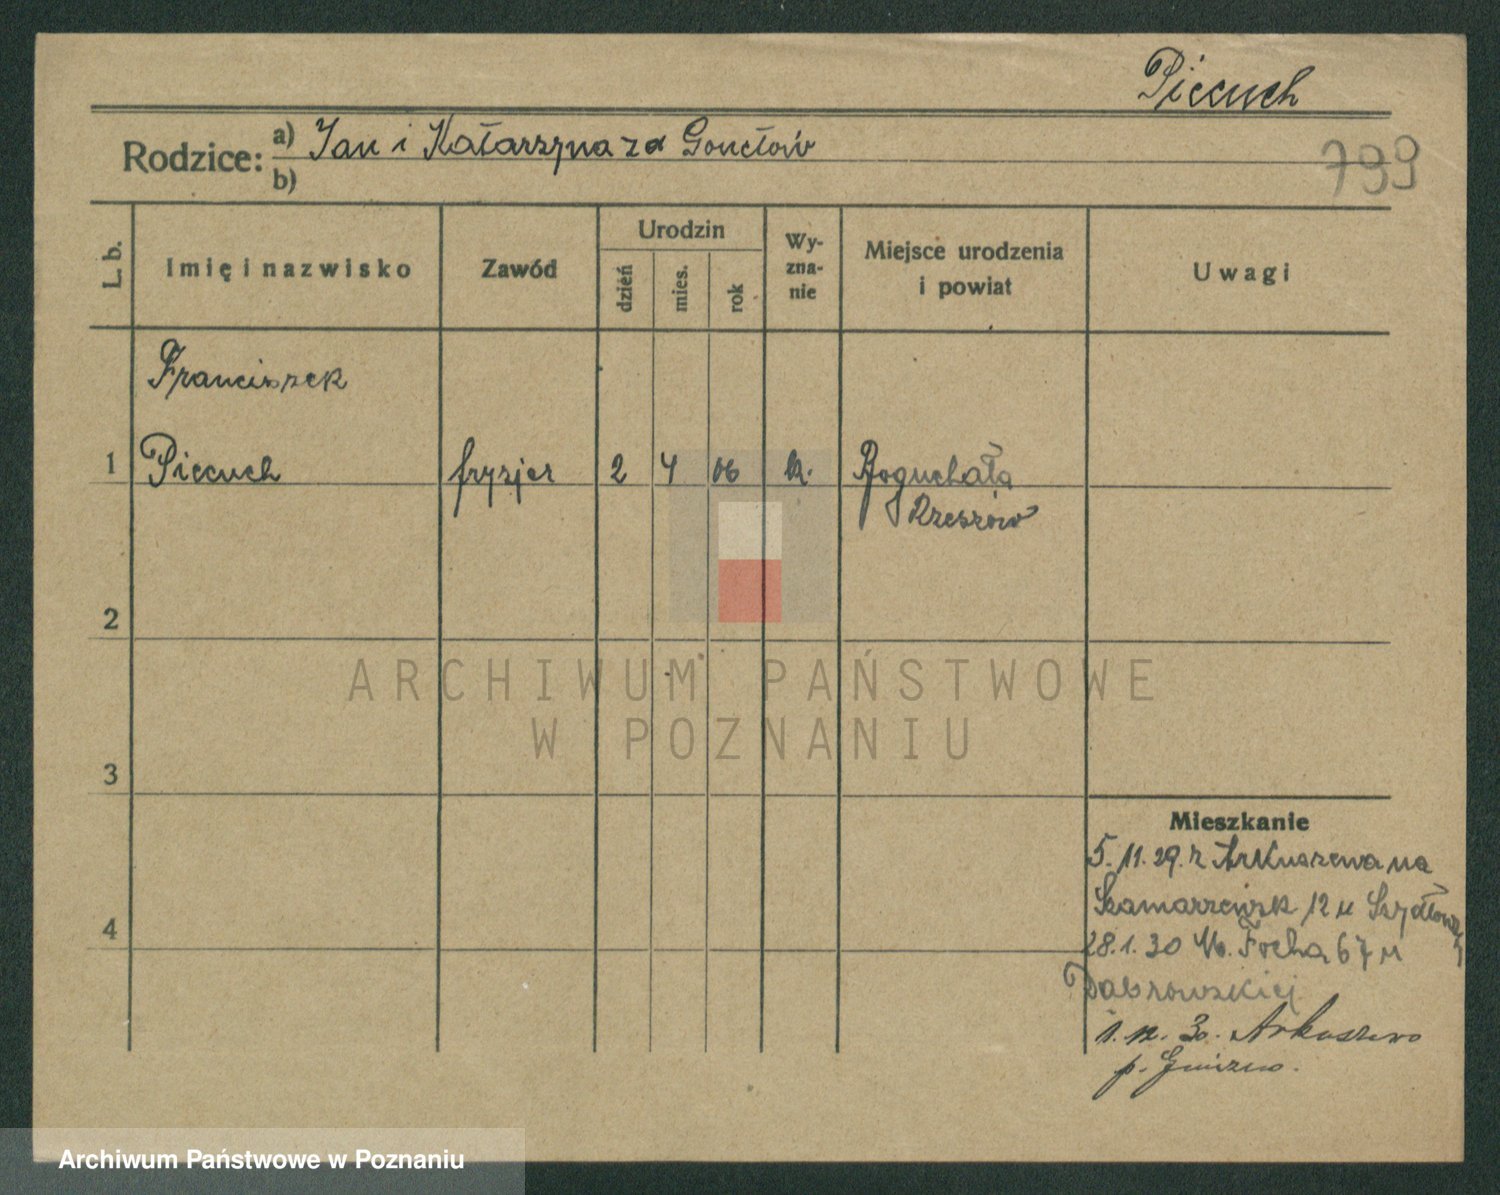 Piecuch
799
Rodzice: a) Jan i Katarzyna za Gonctów
b)
L. b.
Imię i nazwisko
Zawód
Urodzin
dzień
mies.
rok
Wy-
zna-
nie
Miejsce urodzenia
i powiat
Uwagi
Franciszek
1 Piecuch fryzjer 2 4 06 k. Boguchała
Rzeszów
2
ARCHIWUM PAŃSTWOWE
W POZNANIU
3
Mieszkanie
5.11.29. z Arkuszewa na
12 u
4
28.1.30 M. Focha 67 u
Dabrowskiej
30. Arkuszewo
p. Gniezno.
Archiwum Państwowe w Poznaniu